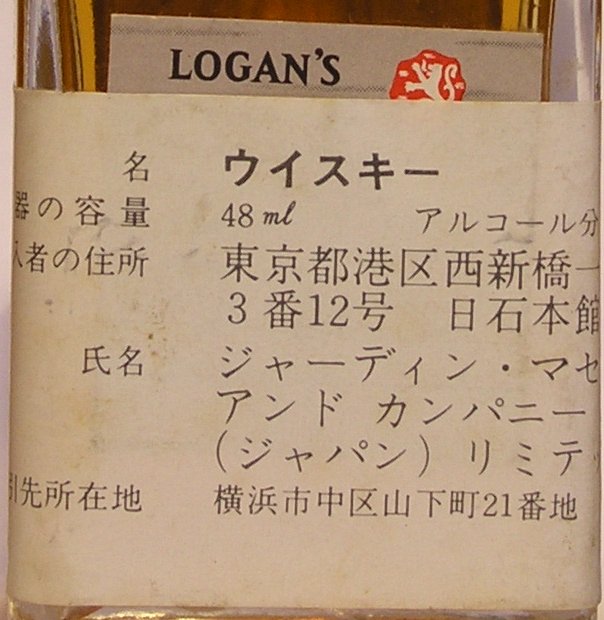 LOGAN'S
名 ウイスキー
器の容量 48ml アルコール分
入者の住所 東京都港区西新橋一
3番12号 日石本館
氏名 ジャーディン・マセ
アンド カンパニー
(ジャパン) リミテ
引先所在地 横浜市中区山下町21番地